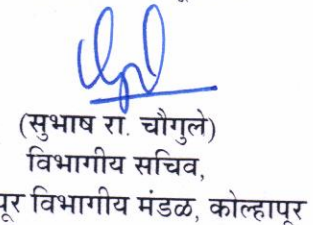 (सुभाष रा. चौगुले)
विभागीय सचिव,
विभागीय मंडळ, कोल्हापूर